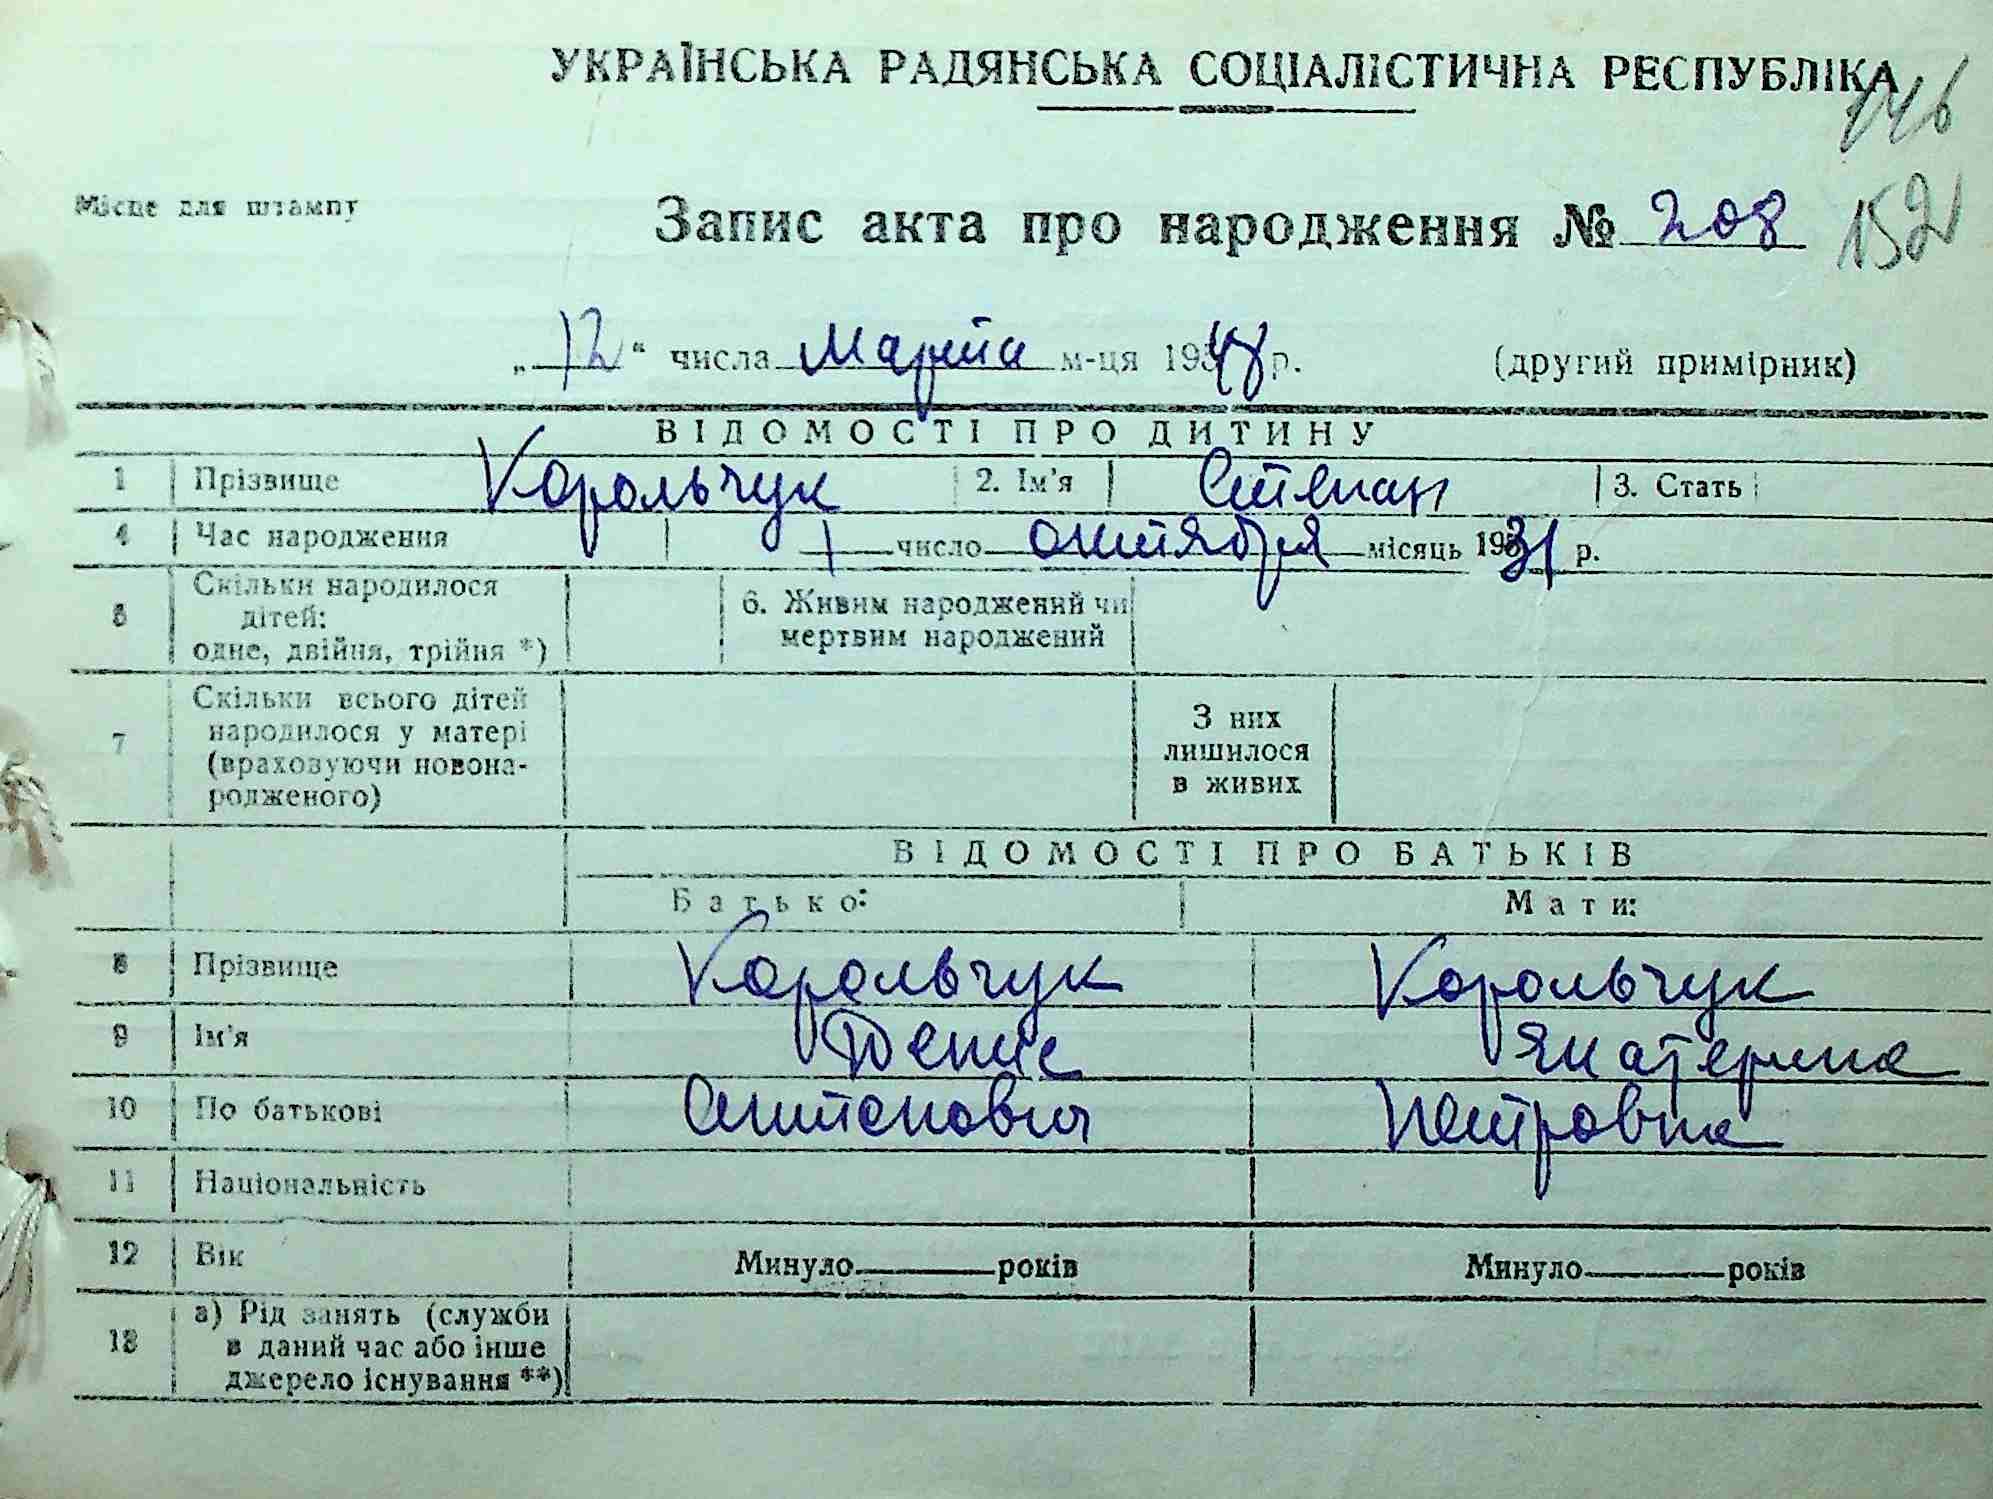 УКРАЇНСЬКА РАДЯНСЬКА СОЦІАЛІСТИЧНА РЕСПУБЛІКА
146
Місце для штампу
Запис акта про народження № 208
152
„12“ числа Марта м-ця 1948 р. (другий примірник)
ВІДОМОСТІ ПРО ДИТИНУ
1 Прізвище Корольчук 2. Ім'я Степан 3. Стать
4 Час народження 1 число октября місяць 1931 р.
5 Скільки народилося дітей: одне, двійня, трійня *) 6. Живим народжений чи мертвим народжений
7 Скільки всього дітей народилося у матері (враховуючи новона-родженого) З них лишилося в живих
ВІДОМОСТІ ПРО БАТЬКІВ
Батько: Мати:
8 Прізвище Корольчук Корольчук
9 Ім'я Денис Екатерина
10 По батькові Антонович Петровна
11 Національність
12 Вік Минуло років Минуло років
13 а) Рід занять (служби в даний час або інше джерело існування **)